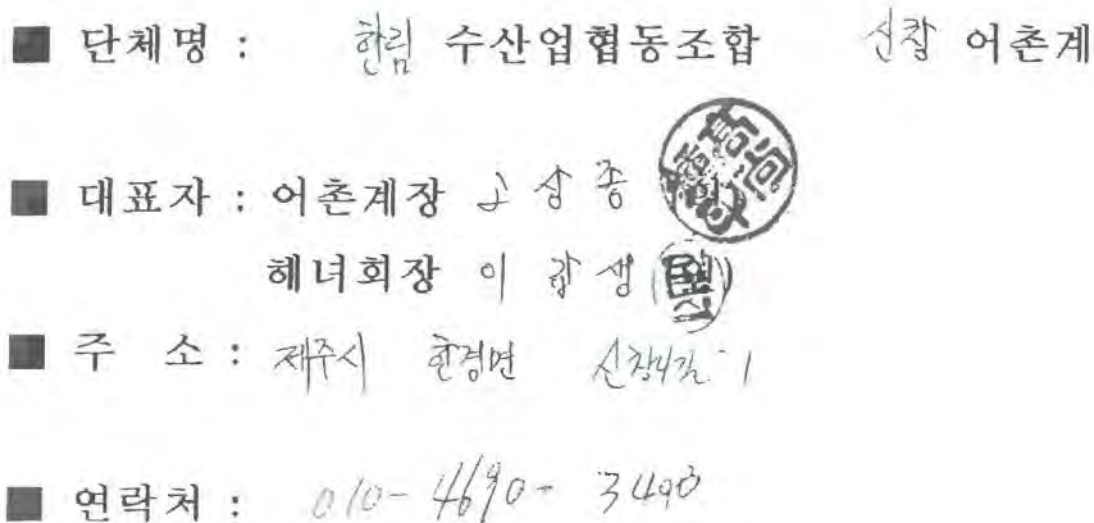 ■ 단체명 : 한림 수산업협동조합 신창 어촌계
■ 대표자 : 어촌계장 고상종
해녀회장 이갑생
■ 주 소 : 제주시 한경면 신창4길 1
■ 연락처 : 010-4690-3490